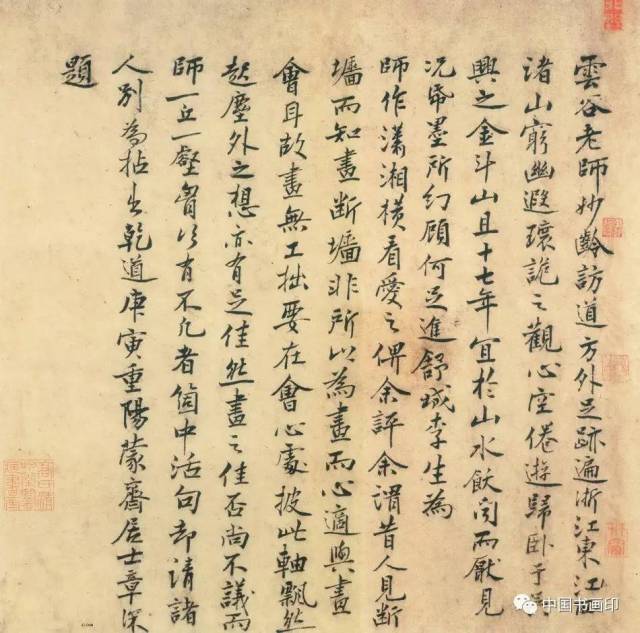 雲谷老師妙齡訪道方外足跡遍浙江東江西
諸山窮幽遐瓌詭之觀心空倦遊歸卧于
興之金斗山且十七年宜於山水飫聞而厭見
況帋墨所幻顧何足進舒城李生為
師作瀟湘橫看愛之俾余評余謂昔人見斷
墻而知畫斷墻非所以為畫而心適與畫
會耳故畫無工拙要在會心處披此軸飄然
起塵外之想亦有足佳然畫之佳否尚不議而
師一丘一壑胷次有不凡者箇中活句却請諸
人別為拈出乾道庚寅重陽蒙齋居士章深
題
中国书画印